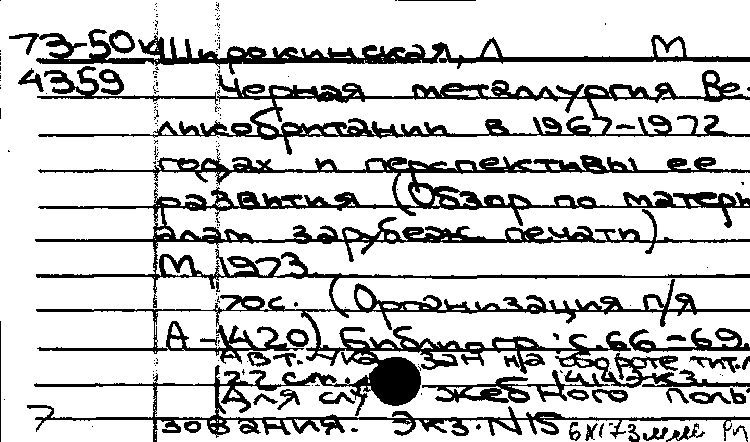 73-50к Широкинская, Л М
4359 Черная металлургия Ве-
ликобритании в 1967-1972
годах и перспективы ее
развития. (Обзор по матери
алам зарубеж. печати).
М., 1973.
70с. (Организация п/я
А-1420). Библиогр.: с.66-69.
Авт. указан на обороте тит.л
22 см. 144 экз.
Для служебного поль
7 зования. Экз. N15